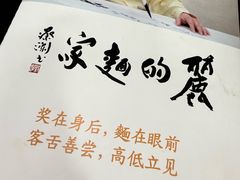 麗的麵家
蔡瀾书
奖在身后，麵在眼前
客舌善尝，高低立见